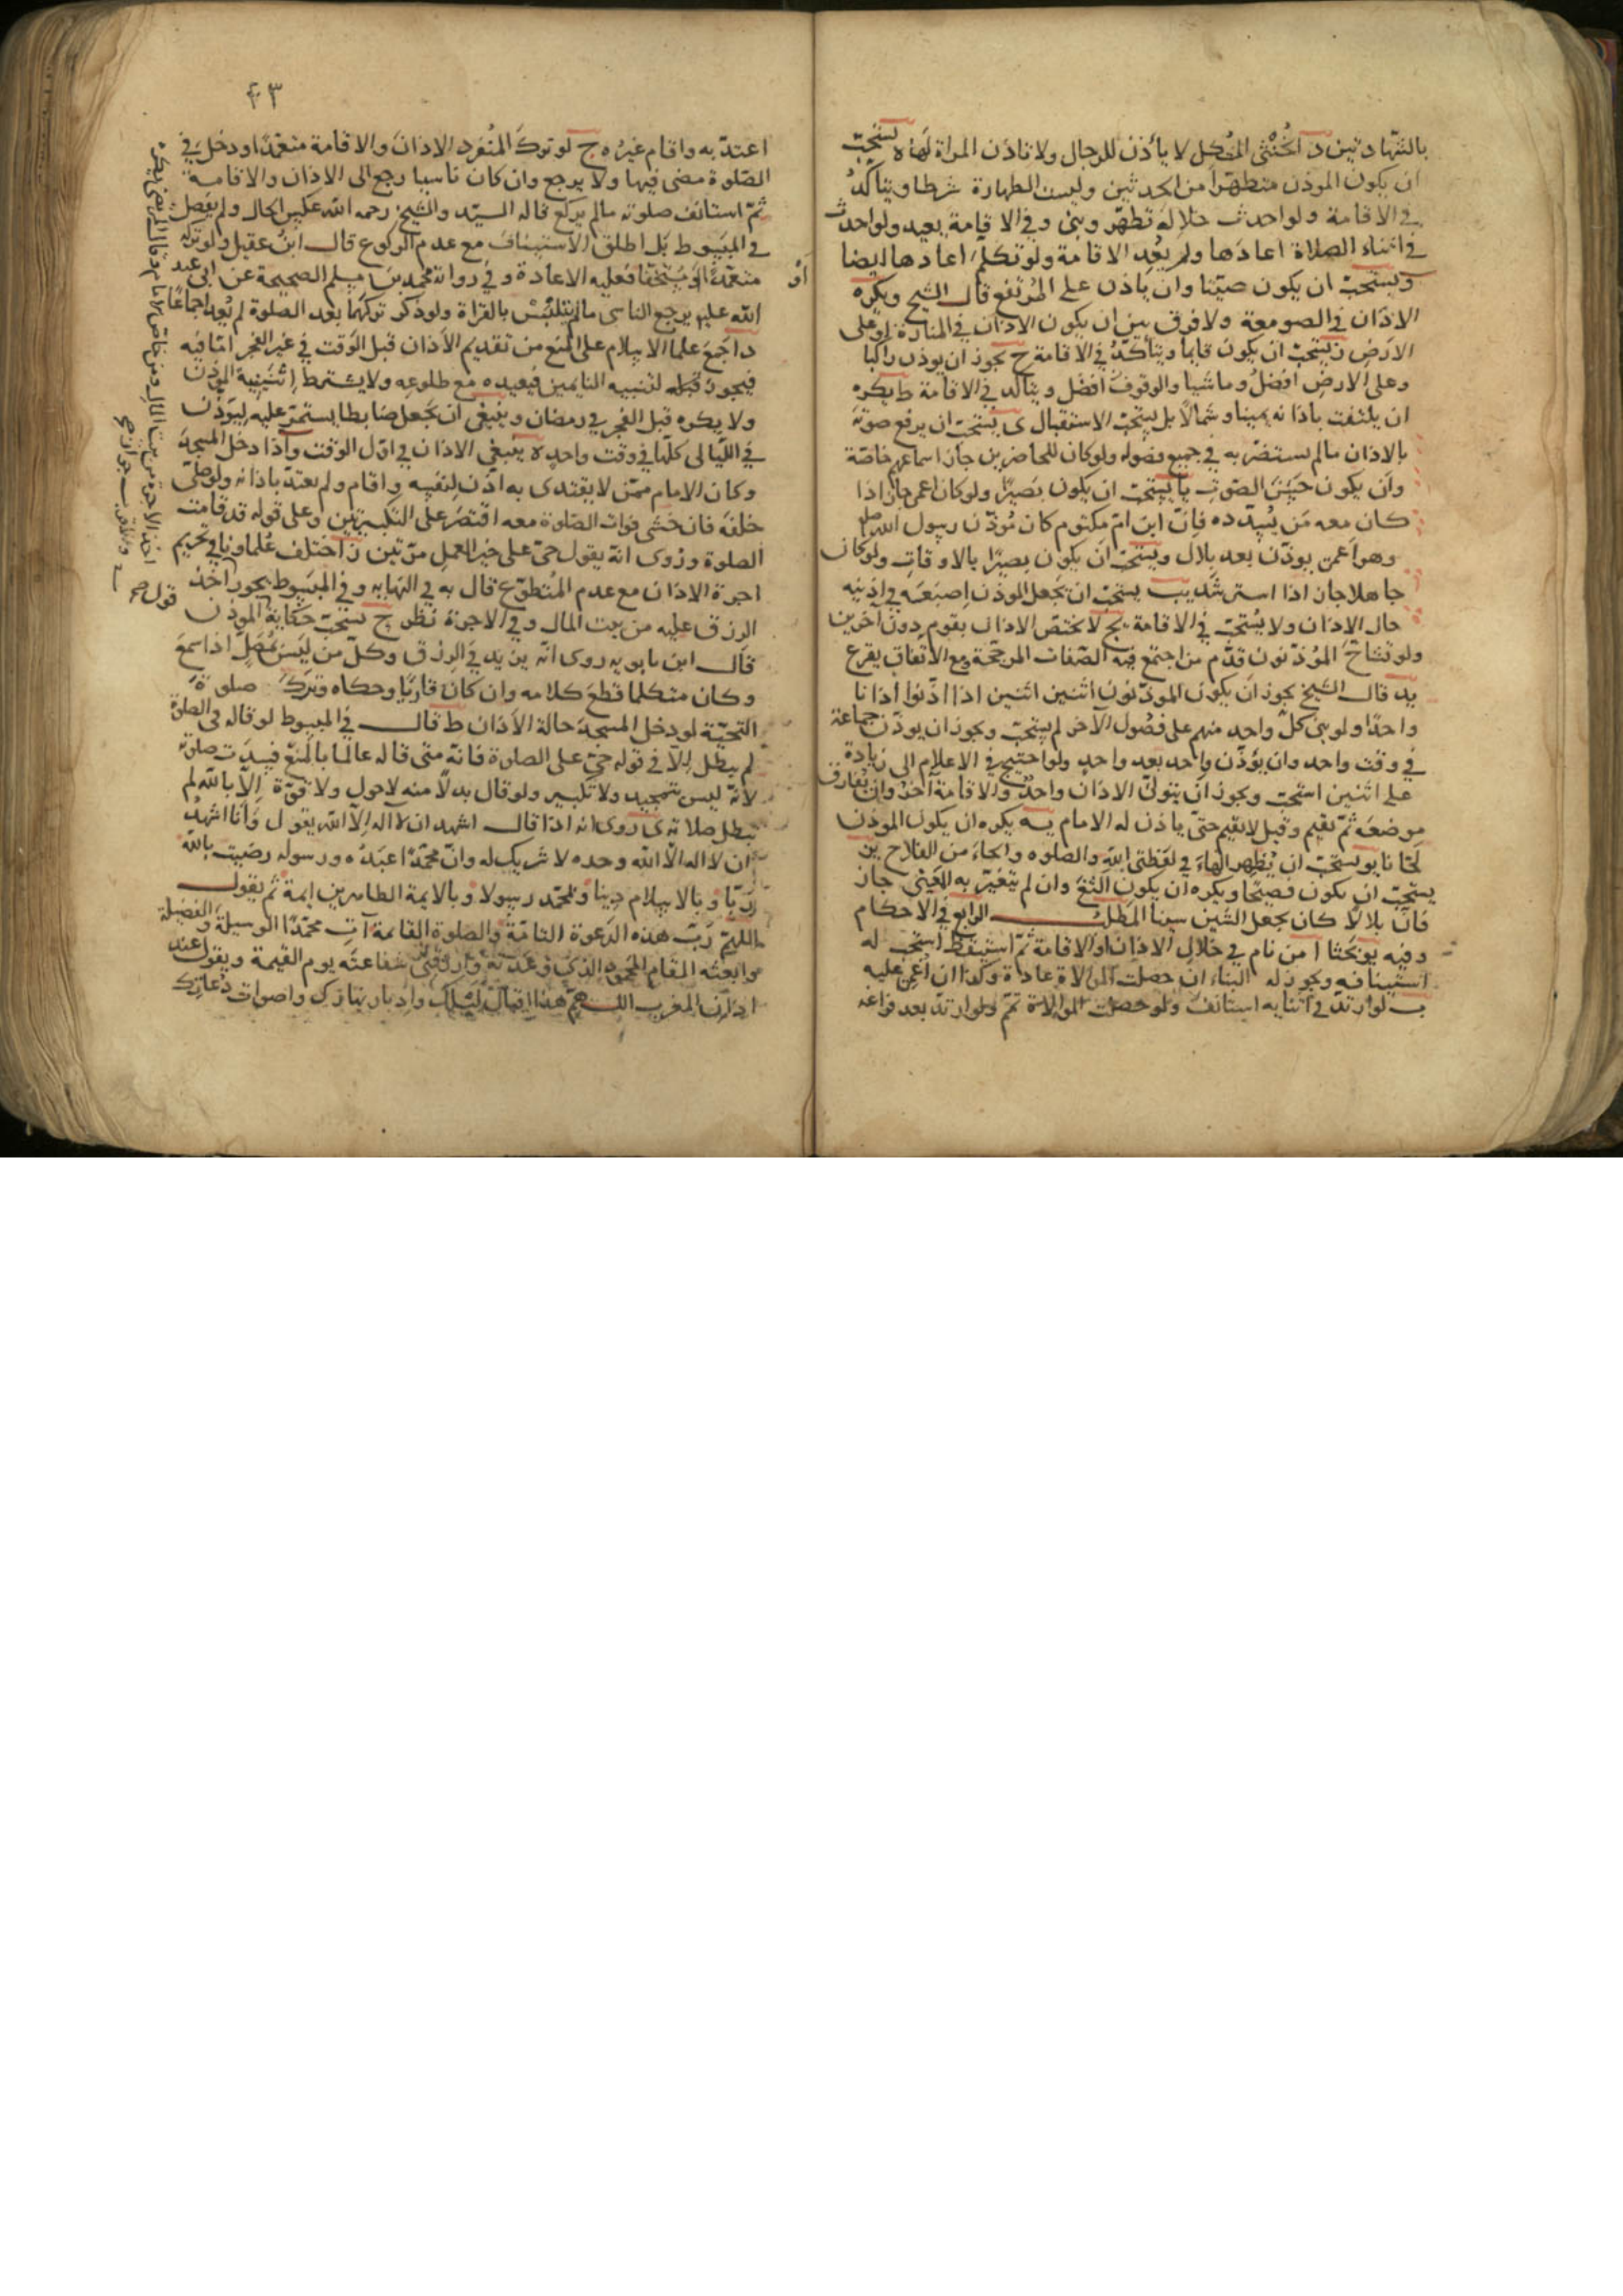 بالشهادتين د الخنثى المشكل لا يأذن للرجال ولا تأذن المراة لها ه يستحب
ان يكون الموذن متطهرا من الحدثين وليست الطهارة شرطا ويتأكد
في الاقامة ولو احدث خلاله تطهر وبنى وفي الاقامة يعيد ولو احدث
في اثناء الصلاة اعادها ولم يعد الاقامة ولو تكلم اعادها ايضا
ويستحب ان يكون صيتا وان ياذن على المرتفع قال الشيخ ويكره
الاذان في الصومعة ولا فرق بين ان يكون الاذان في المنارة او على
الارض ز يستحب ان يكون قايما ويتأكد في الاقامة ح يجوز ان يوذن راكبا
وعلى الارض افضل وماشيا والوقوف افضل ويتاكد في الاقامة ط يكره
ان يلتفت باذانه يمينا وشمالا بل يستحب الاستقبال ى يستحب ان يرفع صوته
بالاذان مالم يستضر به في جميع فصوله ولو كان للحاضرين جاز اسماعهم خاصة
وان يكون حسن الصوت يا يستحب ان يكون بصيرا ولو كان اعمى جاز اذا
كان معه من يسدده فان ابن ام مكتوم كان مؤذن رسول الله صلعم
وهو اعمى يوذن بعد بلال ويستحب ان يكون بصيرا بالاوقات ولو كان
جاهلا جاز اذا استرشد يب يستحب ان يجعل الموذن اصبعيه في اذنيه
حال الاذان ولا يستحب في الاقامة يج لا يختص الاذان بقوم دون آخرين
ولو تشاح المؤذنون قدم من اجتمع فيه الصفات المرجحة ومع الاتفاق يقرع
يد قال الشيخ يجوز ان يكون الموذنون اثنين اثنين اذا اذنوا اذانا
واحدا ولو بنى كل واحد منهم على فصول الآخر لم يستحب ويجوز ان يوذن جماعة
في وقت واحد وان يؤذن واحد بعد واحد ولو احتيج في الاعلام الى زيادة
على اثنين استحب ويجوز ان يتولى الاذان واحد والاقامة آخر وان يفارق
موضعه ثم يقيم وقيل لا يقيم حتى ياذن له الامام يه يكره ان يكون الموذن
لحانا يو يستحب ان يظهر الهاء في لفظتي الله والصلوه والحاء من الفلاح يز
يستحب ان يكون فصيحا ويكره ان يكون الثغ وان لم يتغير به المعنى جاز
فان بلالا كان يجعل الشين سينا المطلب الرابع في الاحكام
وفيه يو بحثا ا من نام في خلال الاذان او الاقامة ثم استيقظ استحب له
استينافه ويجوز له البناء ان حصلت الموالاة عادة وكذا ان اغمي عليه
ب لو ارتد في اثنايه استانف ولو حصلت الموالاة تمم ولو ارتد بعد فراغه
٤٣
اعتد به واقام غيره ج لو ترك المنفرد الاذان والاقامة متعمدا ودخل في
الصلوة مضى فيها ولا يرجع وان كان ناسيا رجع الى الاذان والاقامة
ثم استانف صلوته مالم يركع قاله السيد والشيخ رحمه الله عكس الحال ولم يفصل
في المبسوط بل اطلق الاستيناف مع عدم الركوع قال ابن عقيل ولو تركه
متعمدا او مستخفا فعليه الاعادة وفي رواية محمد بن مسلم الصحيحة عن ابي عبد
او
الله عليه يرجع الناسى مالم يتلبس بالقراة ولو ذكر تركهما بعد الصلوة لم يعد اجماعا
د اجمع علما الاسلام على المنع من تقديم الاذان قبل الوقت في غير الفجر اما فيه
فيجوز قبله لتنبيه النايمين فيعيده مع طلوعه ولا يشترط اثنينية الموذن
ولا يكره قبل الفجر في رمضان وينبغي ان يجعل ضابطا يستمر عليه ليوذن
في الليالي كلها في وقت واحد ه ينبغي الاذان في اول الوقت واذا دخل المسجد
وكان الامام ممن لا يقتدى به اذن لنفسه واقام ولم يعتد باذانه ولو صلى
خلفه فان خشى فوات الصلوة معه اقتصر على التكبيرتين وعلى قوله قد قامت
الصلوة وروى انه يقول حي على خير العمل مرتين ز اختلف علماونا في تحريم
اجرة الاذان مع عدم المتطوع قال به في النهايه وفي المبسوط يجوز اخذ
الرزق عليه من بيت المال وفي الاجرة نظر ح يستحب حكاية الموذن
قال ابن بابويه روى انه يزيد في الرزق وكل من ليس بمصل اذا سمع
وكان متكلما قطع كلامه وان كان قاريا وحكاه وترك صلوة
التحية لو دخل المسجد حالة الاذان ط قال في المبسوط لو قاله في الصلوة
لم يبطل الا في قوله حي على الصلوة فانه متى قاله عالما بالمنع فسدت صلوته
لانه ليس بتحميد ولا تكبير ولو قال بدلا منه لاحول ولا قوة الا بالله لم
تبطل صلاته ى روى انه اذا قال اشهد ان لا اله الا الله يقول وانا اشهد
ان لا اله الا الله وحده لا شريك له وان محمدا عبده ورسوله رضيت بالله
ربا وبالاسلام دينا وبمحمد رسولا وبالايمة الطاهرين ايمة ثم يقول
اللهم رب هذه الدعوة التامة والصلوة القائمة آت محمدا الوسيلة والفضيلة
وابعثه المقام المحمود الذي وعدته وارزقنى شفاعته يوم القيمة ويقول عند
اذان المغرب اللهم هذا اقبال ليلك وادبار نهارك واصوات دعاتك
اخذ الاجرة من بيت المال ومن خاص الامام وقال المرتضى يكره
قول صح